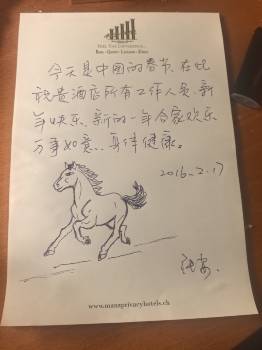 FEEL THE DIFFERENCE...
今天是中国的春节,在此
祝贵酒店所有工作人员 新
年快乐、新的一年合家欢乐
万事如意、身体健康。
2016.2.17
www.manzprivacyhotels.ch